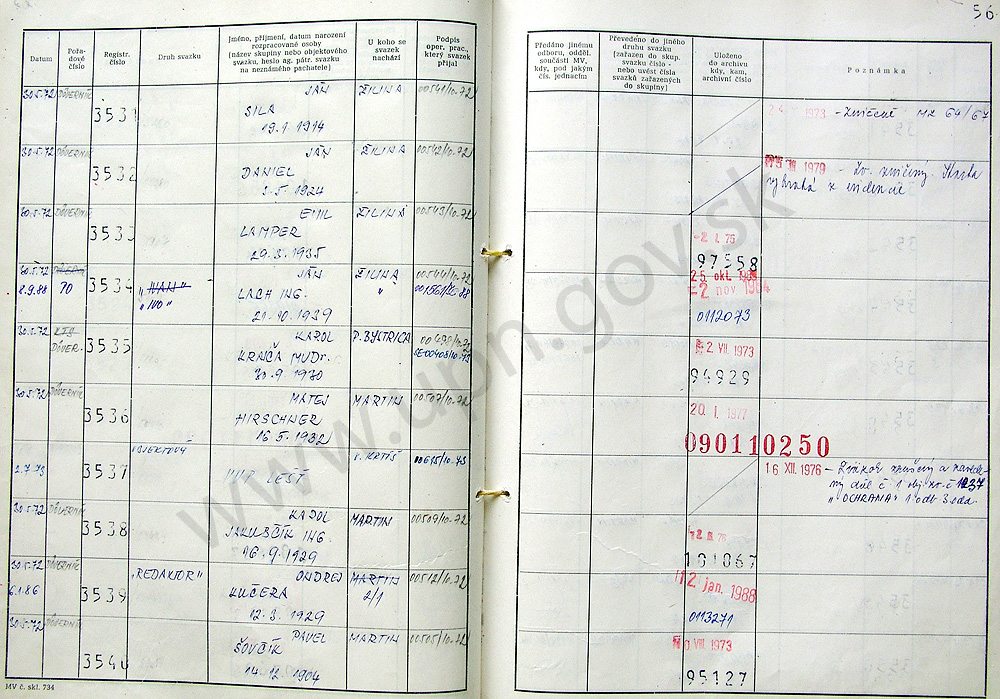 56
Datum
Pořadové číslo
Registr. číslo
Druh svazku
Jméno, příjmení, datum narození
rozpracované osoby
(název skupiny nebo objektového
svazku, heslo ag. pátr. svazku
na neznámého pachatele)
U koho se
svazek
nachází
Podpis
oper. prac.,
který svazek
přijal
Předáno jinému
odboru, odděl.
součásti MV,
kdy, pod jakým
čís. jednacím
Převedeno do jiného
druhu svazku
(zařazen do skup.
svazku číslo -
nebo uvést čísla
svazků zařazených
do skupiny)
Uloženo
do archivu
kdy, kam,
archivní číslo
Poznámka
30.5.72 DÔVERNÍK 3531 JÁN ŽILINA 00541/10-72
SILA
19.1 1914
1973 - Zničené
30.5.72 DÔVERNÍK 3532 JÁN ŽILINA 00542/10-72
DANIEL
3.5.1924
1979
30.5.72 DÔVERNÍK 3533 EMIL ŽILINA 00543/10-72
LAMPER
29.3.1935
-2. I. 76
97558
30.5.72 3534 "IVAN" JÁN ŽILINA 00544/10-72
8.9.88 70 "IVO" LACH ING. "
21.10.1939
25. okt.
-2 nov
0112073
30.5.72 KTS 3535 KAROL P. BYSTRICA
DÔVER. KRNČA MUDr.
30.9.1930
2. VII. 1973
94929
30.5.72 DÔVERNÍK 3536 MATEJ MARTIN 00507/10-72
HIRSCHNER
16.5.1932
20. I. 1977
090110250
2.7.73 3537 OBJEKTOVÝ V. KRTÍŠ 00615/10-73
LEŠŤ
16 XII. 1976 -
"OCHRANA"
30.5.72 DÔVERNÍK 3538 KAROL MARTIN 00509/10-72
JAKUBČÍK ING.
16.9.1929
101067
30.5.72 DÔVERNÍK 3539 "REDAKTOR" ONDREJ MARTIN 00512/10-72
6.1.86 KUČERA 2/1
12.3.1929
12 jan. 1988
0113271
30.5.72 DÔVERNÍK 3540 PAVEL MARTIN 00505/10-72
ŠOVČÍK
14.12.1904
VIII. 1973
95127
MV č. skl. 734
www.upn.gov.sk